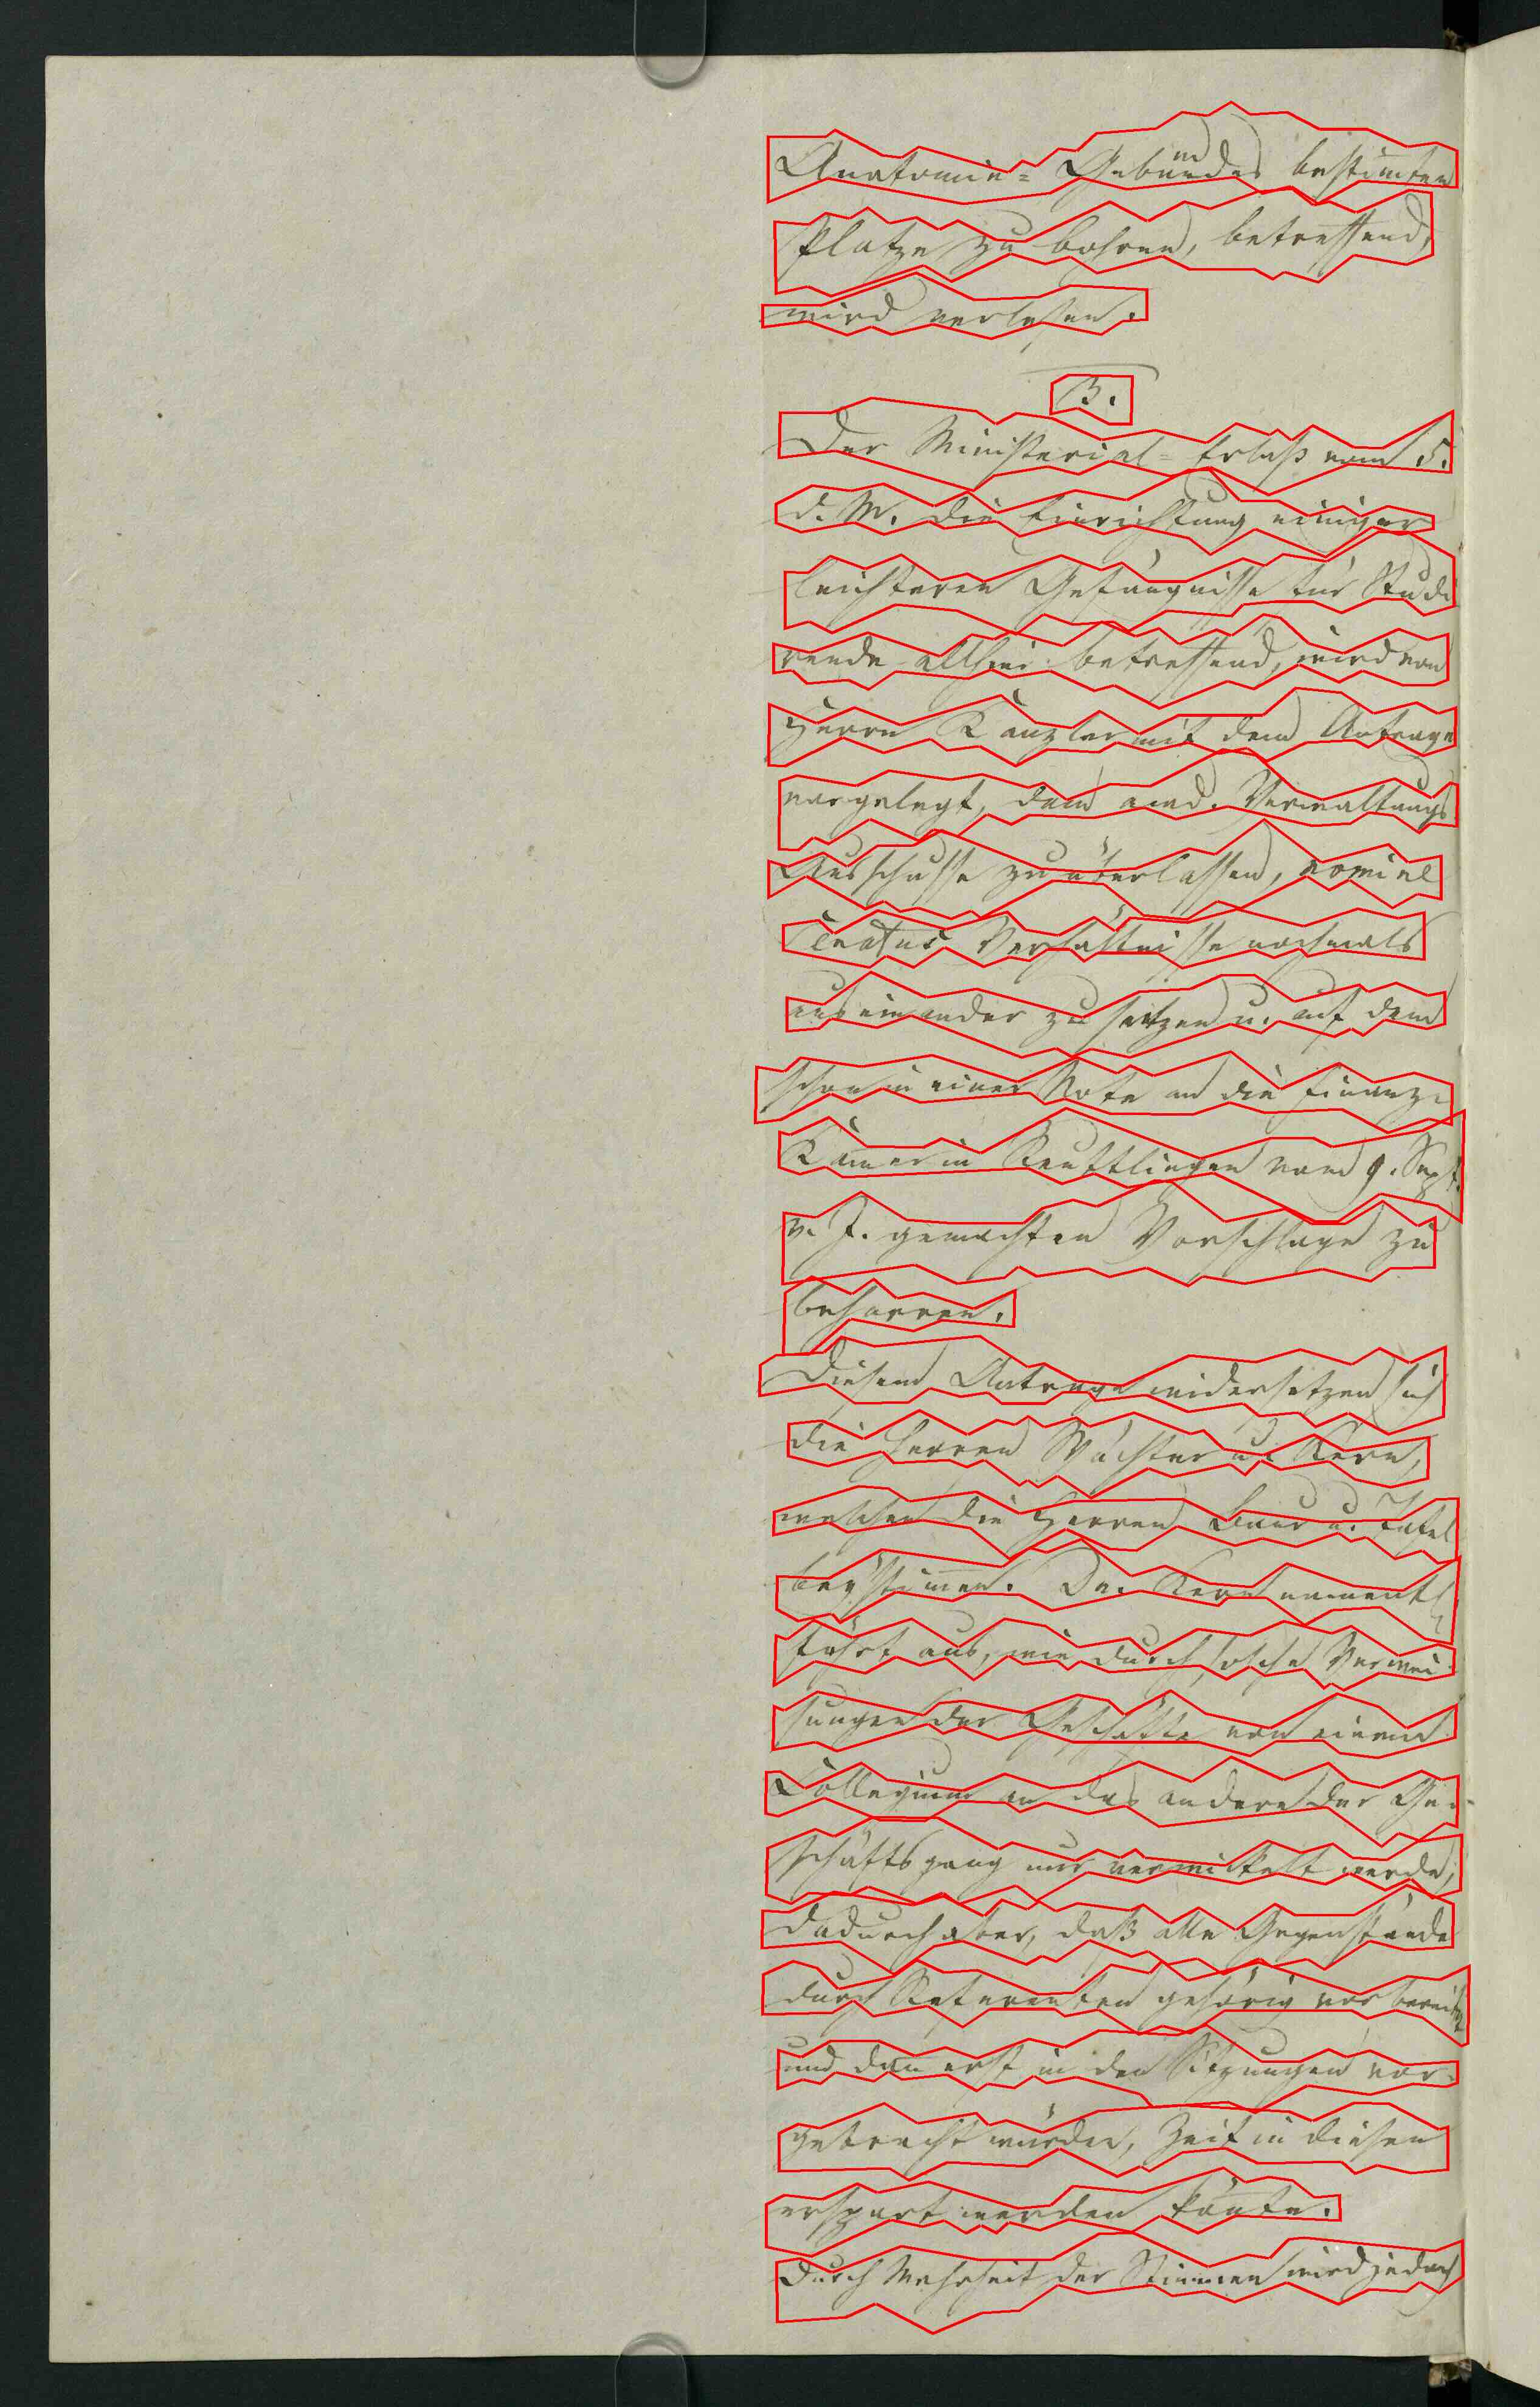 Anatomie- Gebäudes bestimten
Platze zu bohren, betreffend,
wird verlesen.
3.
Der Ministerial-Erlaß vom 5.
d. M. die Einrichtung einiger
leichteren Gefängnisse für Studi
rende allhier betreffend, wird von
Herrn Kanzler mit dem Antrage
vorgelegt, dem acad. Verwaltungs
Ausschusse zu überlassen,
Senatus Verhältnisse nochmals
auseinander zu setzen u. auf dem
schon in einer Note an die Finanz-
Kamer in Reuttlingen vom 9. Sept.
v. J. gemachten Vorschlage zu
beharren.
Diesem Antrage widersetzen sich
die Herren Wächter u. Kern,
welchen die Herren Baur u. Tafel
beystimen. Dr. Kern namentl.
führt aus, wie durch solche Verwei
sungen der Geschäfte von einem
Collegium an das andere der Ge-
schäftsgang nur verwickelt werde,
dadurch aber, daß alle Gegenstände
durch Referenten gehörig vorbereitet
und dann erst in den Sitzungen vor-
gebracht würden, Zeit in diesen
erspart werden könte.
Durch Mehrheit der Stimmen wird jedoch